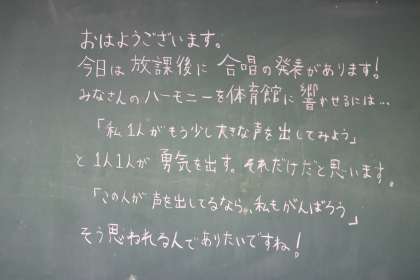 おはようございます。
今日は放課後に合唱の発表があります!
みなさんのハーモニーを体育館に響かせるには…
「私1人がもう少し大きな声を出してみよう」
と1人1人が勇気を出す。それだけだと思います。
「この人が声を出してるなら、私もがんばろう」
そう思われる人でありたいですね!